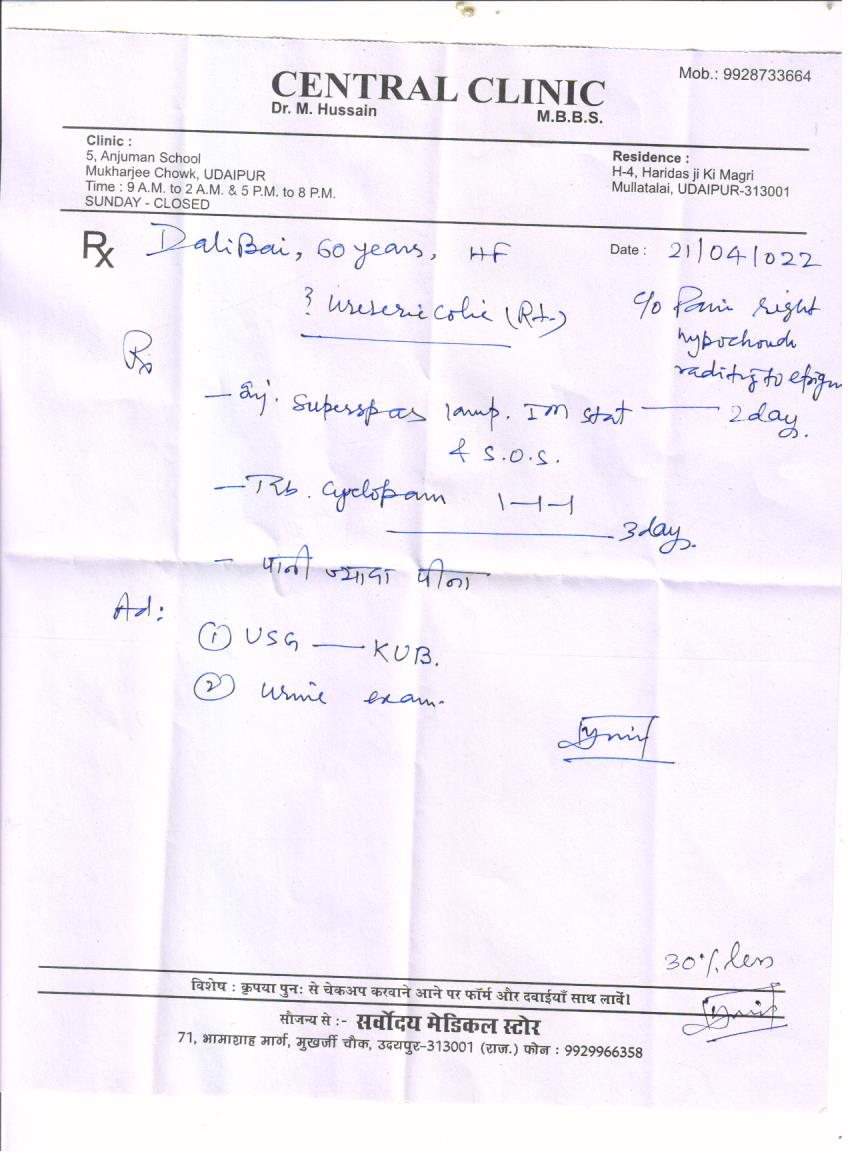 Mob.: 9928733664
CENTRAL CLINIC
Dr. M. Hussain
M.B.B.S.
Clinic :
5, Anjuman School
Mukharjee Chowk, UDAIPUR
Time : 9 A.M. to 2 A.M. & 5 P.M. to 8 P.M.
SUNDAY - CLOSED
Residence :
H-4, Haridas ji Ki Magri
Mullatalai, UDAIPUR-313001
Rx DaliBai, 60 years, HF
Date : 21/04/022
? Ureteric Colic (Rt.)
c/o Pain right
hypochond
raditing to epigm
Rx
- Inj. Superspas 1amp. IM stat — 2day.
& S.O.S.
- Tab. Cyclopam 1-1-1
— 3day.
- पानी ज्यादा पीना
Ad:
① USG — KUB.
② urine exam.
30% less
विशेष : कृपया पुनः से चेकअप करवाने आने पर फॉर्म और दवाईयाँ साथ लावें।
सौजन्य से :- सर्वोदय मेडिकल स्टोर
71, भामाशाह मार्ग, मुखर्जी चौक, उदयपुर-313001 (राज.) फोन : 9929966358